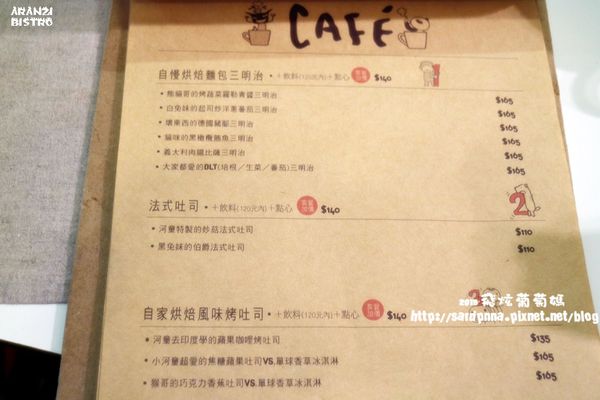 ARANZI
BISTRO
CAFÉ
自慢烘焙麵包三明治‧＋飲料(120元內)＋點心 套餐加價 $140
1
•熊貓哥的烤蔬菜羅勒青醬三明治 $165
•白兔妹的起司炒洋蔥番茄三明治 $165
•壞東西的德國豬腳三明治 $165
•貓咪的黑橄欖鮪魚三明治 $165
•義大利肉腸比薩三明治 $165
•大家都愛的BLT(培根／生菜／番茄)三明治 $165
法式吐司‧＋飲料(120元內)＋點心 套餐加價 $140
2
•河童特製的炒菇法式吐司 $110
•黑兔妹的伯爵法式吐司 $110
自家烘焙風味烤吐司‧＋飲料(120元內)＋點心 套餐加價 $140
•河童去印度學的蘋果咖哩烤吐司 $135
•小河童超愛的焦糖蘋果吐司VS.單球香草冰淇淋 $165
•猴哥的巧克力香蕉吐司VS.單球香草冰淇淋 $165
飛炫葡萄媽
https://sarapnna.pixnet.net/blog